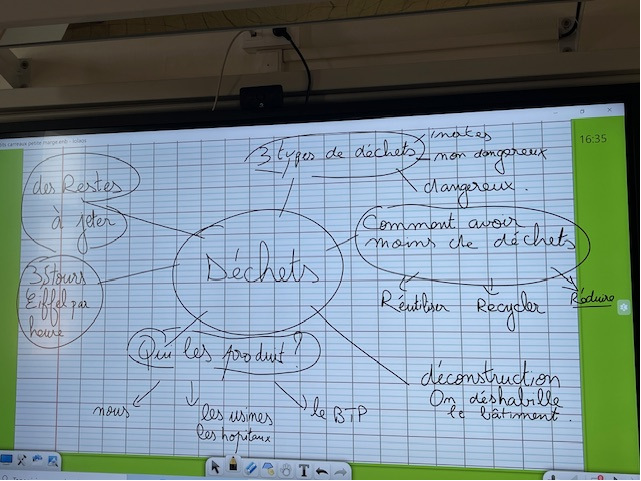 16:35
3 types de déchets
inertes
non dangereux
dangereux.
des Restes
à jeter
Comment avoir
moins de déchets
Déchets
Réutiliser
Recycler
Réduire
35 tours
Eiffel par
heure
Qui les produit ?
nous
les usines
les hopitaux
le BTP
déconstruction
On déshabille
le bâtiment.